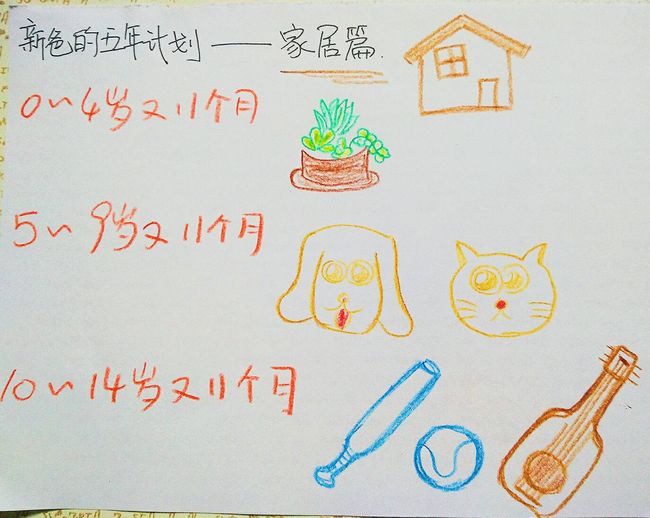 新色的五年计划——家居篇.
0~4岁又11个月
5~9岁又11个月
10~14岁又11个月